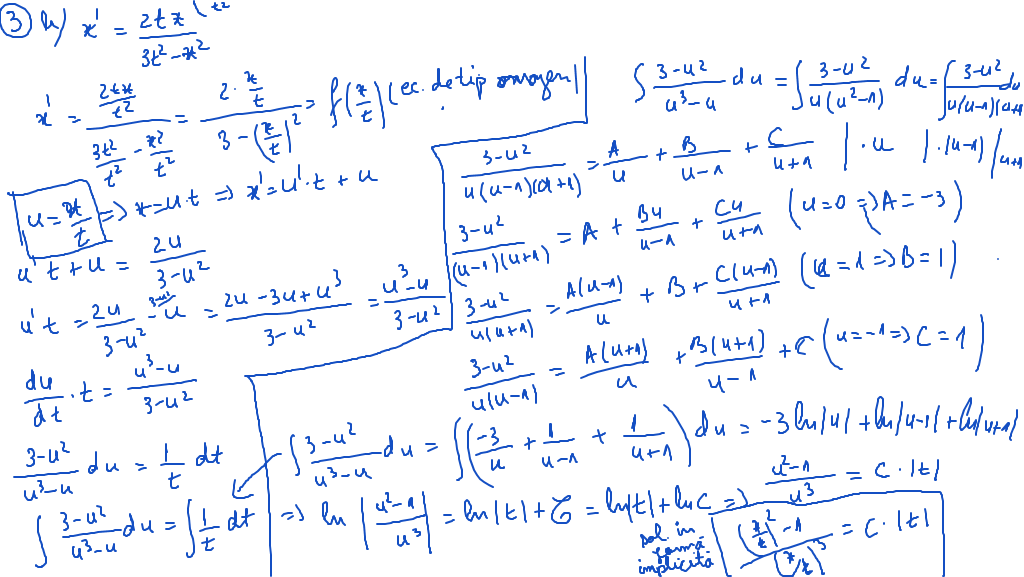 ③ b) x' = 2tx / (3t² - x²) | t²
x' = (2tx/t²) / (3t²/t² - x²/t²) = (2 · x/t) / (3 - (x/t)²) = f(x/t) (ec. de tip omogen)
u = x/t => x = u·t => x' = u'·t + u
u't + u = 2u / (3-u²)
u't = 2u / (3-u²) - ³⁻ᵘ²⁾u = (2u - 3u + u³) / (3-u²) = (u³-u) / (3-u²)
du/dt · t = (u³-u) / (3-u²)
(3-u²) / (u³-u) du = 1/t dt
∫ (3-u²) / (u³-u) du = ∫ 1/t dt
∫ (3-u²) / (u³-u) du = ∫ (3-u²) / (u(u²-1)) du = ∫ (3-u²) / (u(u-1)(u+1)) du
(3-u²) / (u(u-1)(u+1)) = A/u + B/(u-1) + C/(u+1) | ·u | ·(u-1) | (u+1)
(3-u²) / ((u-1)(u+1)) = A + Bu/(u-1) + Cu/(u+1) (u=0 => A = -3)
(3-u²) / (u(u+1)) = A(u-1)/u + B + C(u-1)/(u+1) (u=1 => B=1)
(3-u²) / (u(u-1)) = A(u+1)/u + B(u+1)/(u-1) + C (u=-1 => C=1)
∫ (3-u²) / (u³-u) du = ∫ (-3/u + 1/(u-1) + 1/(u+1)) du = -3 ln|u| + ln|u-1| + ln|u+1|
=> ln |(u²-1) / u³| = ln|t| + C = ln|t| + ln C => (u²-1) / u³ = C · |t|
sol. in formă implicită
((x/t)² - 1) / (x/t)³ = C · |t|